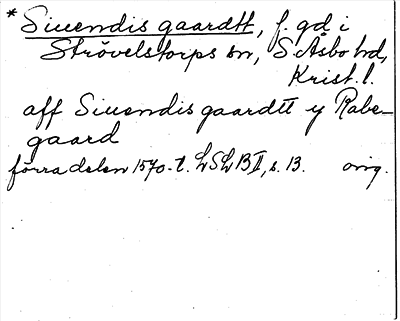 * Siuendis gaardtt, f. gd i
Strövelstorps sn, S. Åsbo hd,
Krist. l.
aff Siuendis gaardtt y Rabe-
gaard
förra delen 1570-t. LSLB II, s. 13. orig.